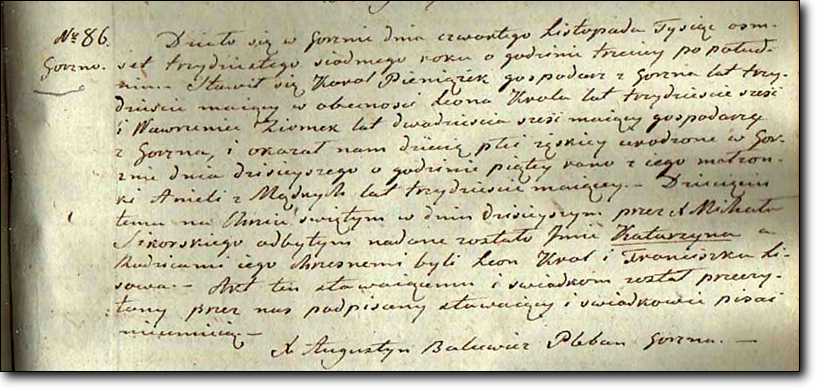 Nr 86.
Gorzno.
Działo się w Gorznie dnia czwartego Listopada Tysiąc osm-
set trzydziestego siodmego roku o godzinie trzeciey po połud-
niu. Stawił się Karol Pieniążek gospodarz z Gorzna lat trzy-
dzieście maiący w obecności Leona Krola lat trzydzieście sześć
i Wawrzeniec Ziomek lat dwadzieścia sześć maiący gospodarzy
z Gorzna, i okazał nam dziecię płci żęskiey urodzone w Gor-
znie dnia dzisieyszego o godzinie piątey rano z iego małżon-
ki Anieli z Mądrych lat trzydzieście maiącey. - Dziecięciu
temu na Chrzcie świętym w dniu dzisieyszym przez X Michała
Sikorskiego odbytym nadane zostało Jmie Katarzyna a
Rodzicami iego chrzesnemi byli Leon Krol i Franciszka Li-
sowa. - Akt ten stawaiącemu i swiadkom został przeczy-
tany przez nas podpisany stawaiący i swiadkowie pisać
nieumieią -
X Augustyn Balcewicz Pleban Gorzna. -